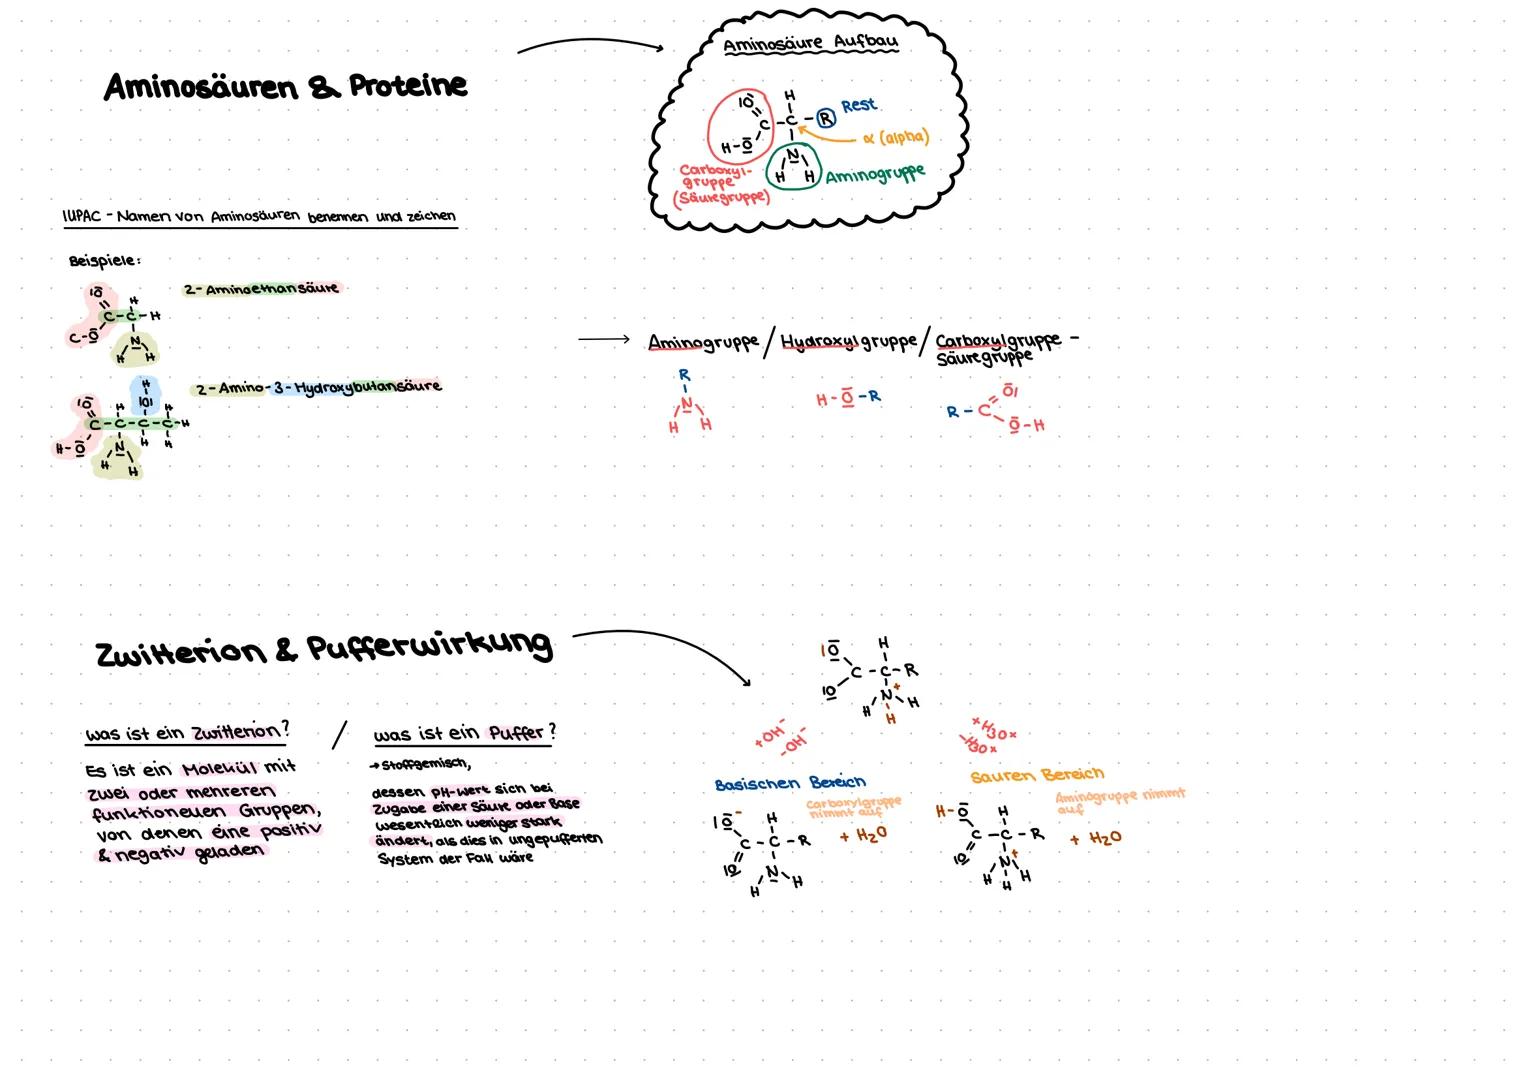 Aminosäuren & Proteine
Aminosäure Aufbau
Rest
α (alpha)
Aminogruppe
Carboxyl-
gruppe
(Säuregruppe)
IUPAC - Namen von Aminosäuren benennen und zeichen
Beispiele:
2-Aminoethansäure
2-Amino-3-Hydroxybutansäure
Aminogruppe / Hydroxylgruppe / Carboxylgruppe -
Säuregruppe
R
H-O-R
Zwitterion & Pufferwirkung
was ist ein Zwitterion? / was ist ein Puffer?
Es ist ein Molekül mit
zwei oder mehreren
funktionellen Gruppen,
von denen eine positiv
& negativ geladen
→ Stoffgemisch,
dessen pH-Wert sich bei
Zugabe einer Säure oder Base
wesentlich weniger stark
ändert, als dies in ungepufferten
System der Fall wäre
+OH⁻
-OH⁻
+H3O+
-H3O+
Basischen Bereich
Carboxylgruppe
nimmt auf
+ H2O
Sauren Bereich
Aminogruppe nimmt
auf
+ H2O